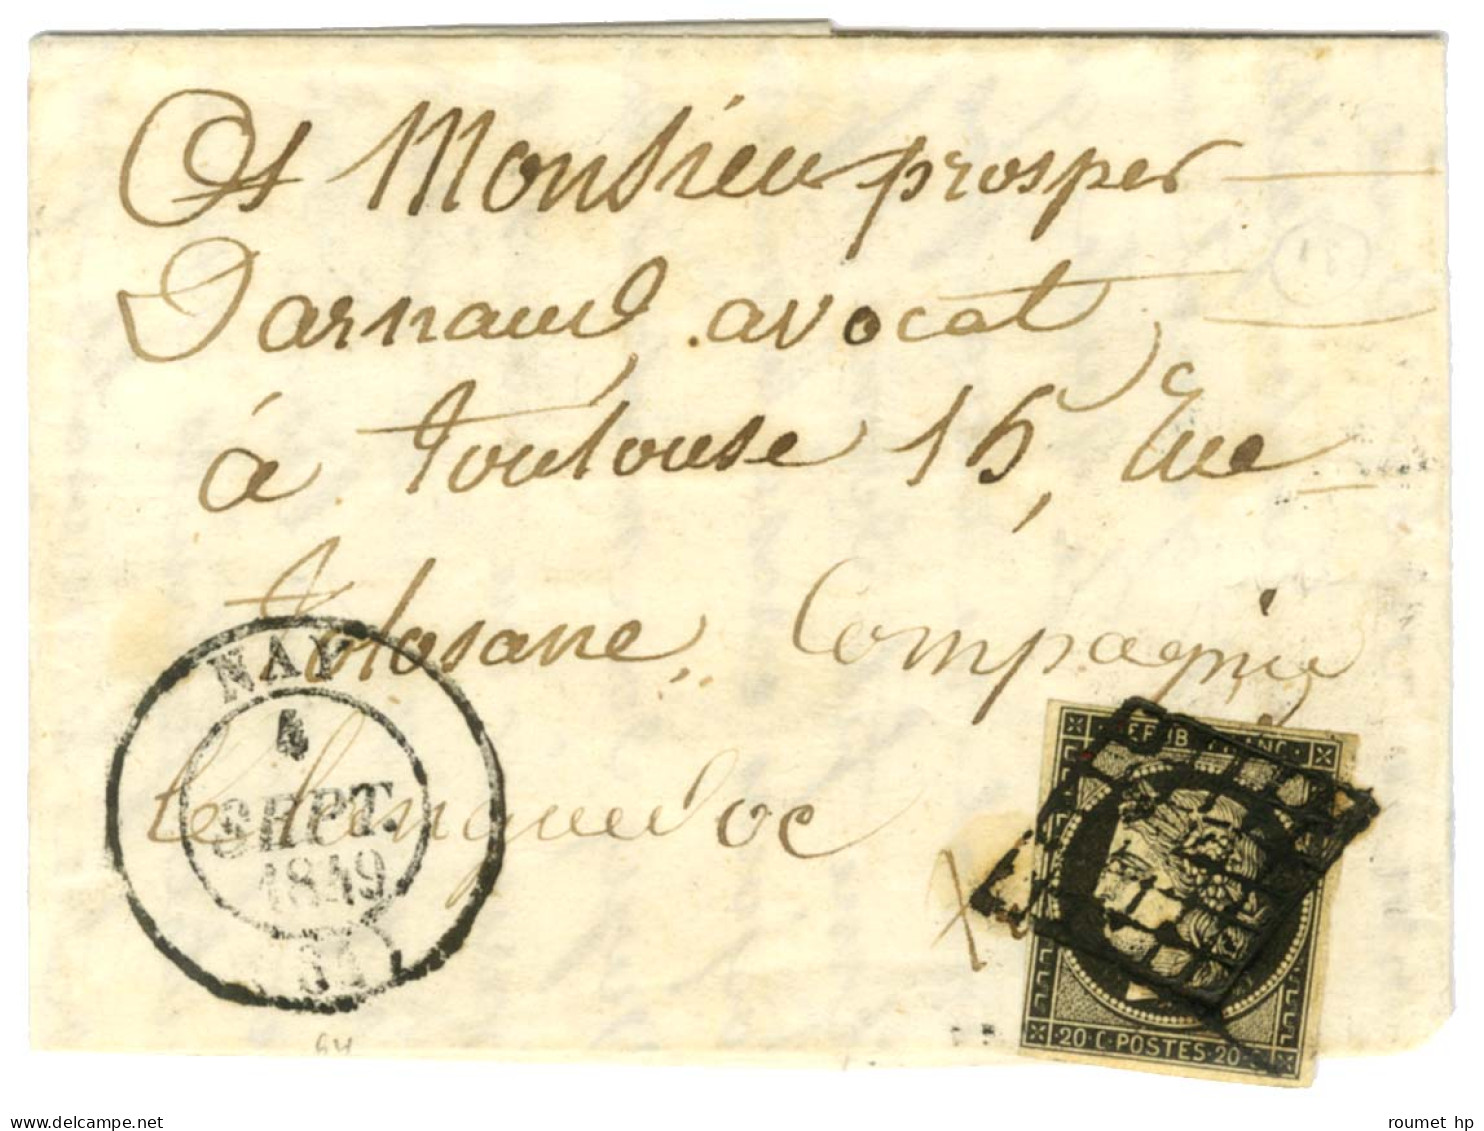 A Monsieur prosper
Darnaud, avocat
à Toulouse 15, rue
tolosane, Compagnie
le languedoc
NAY
4
SEPT.
1849
REPUB FRANC
20 C POSTES 20
64
www.delcampe.net
roumet hp